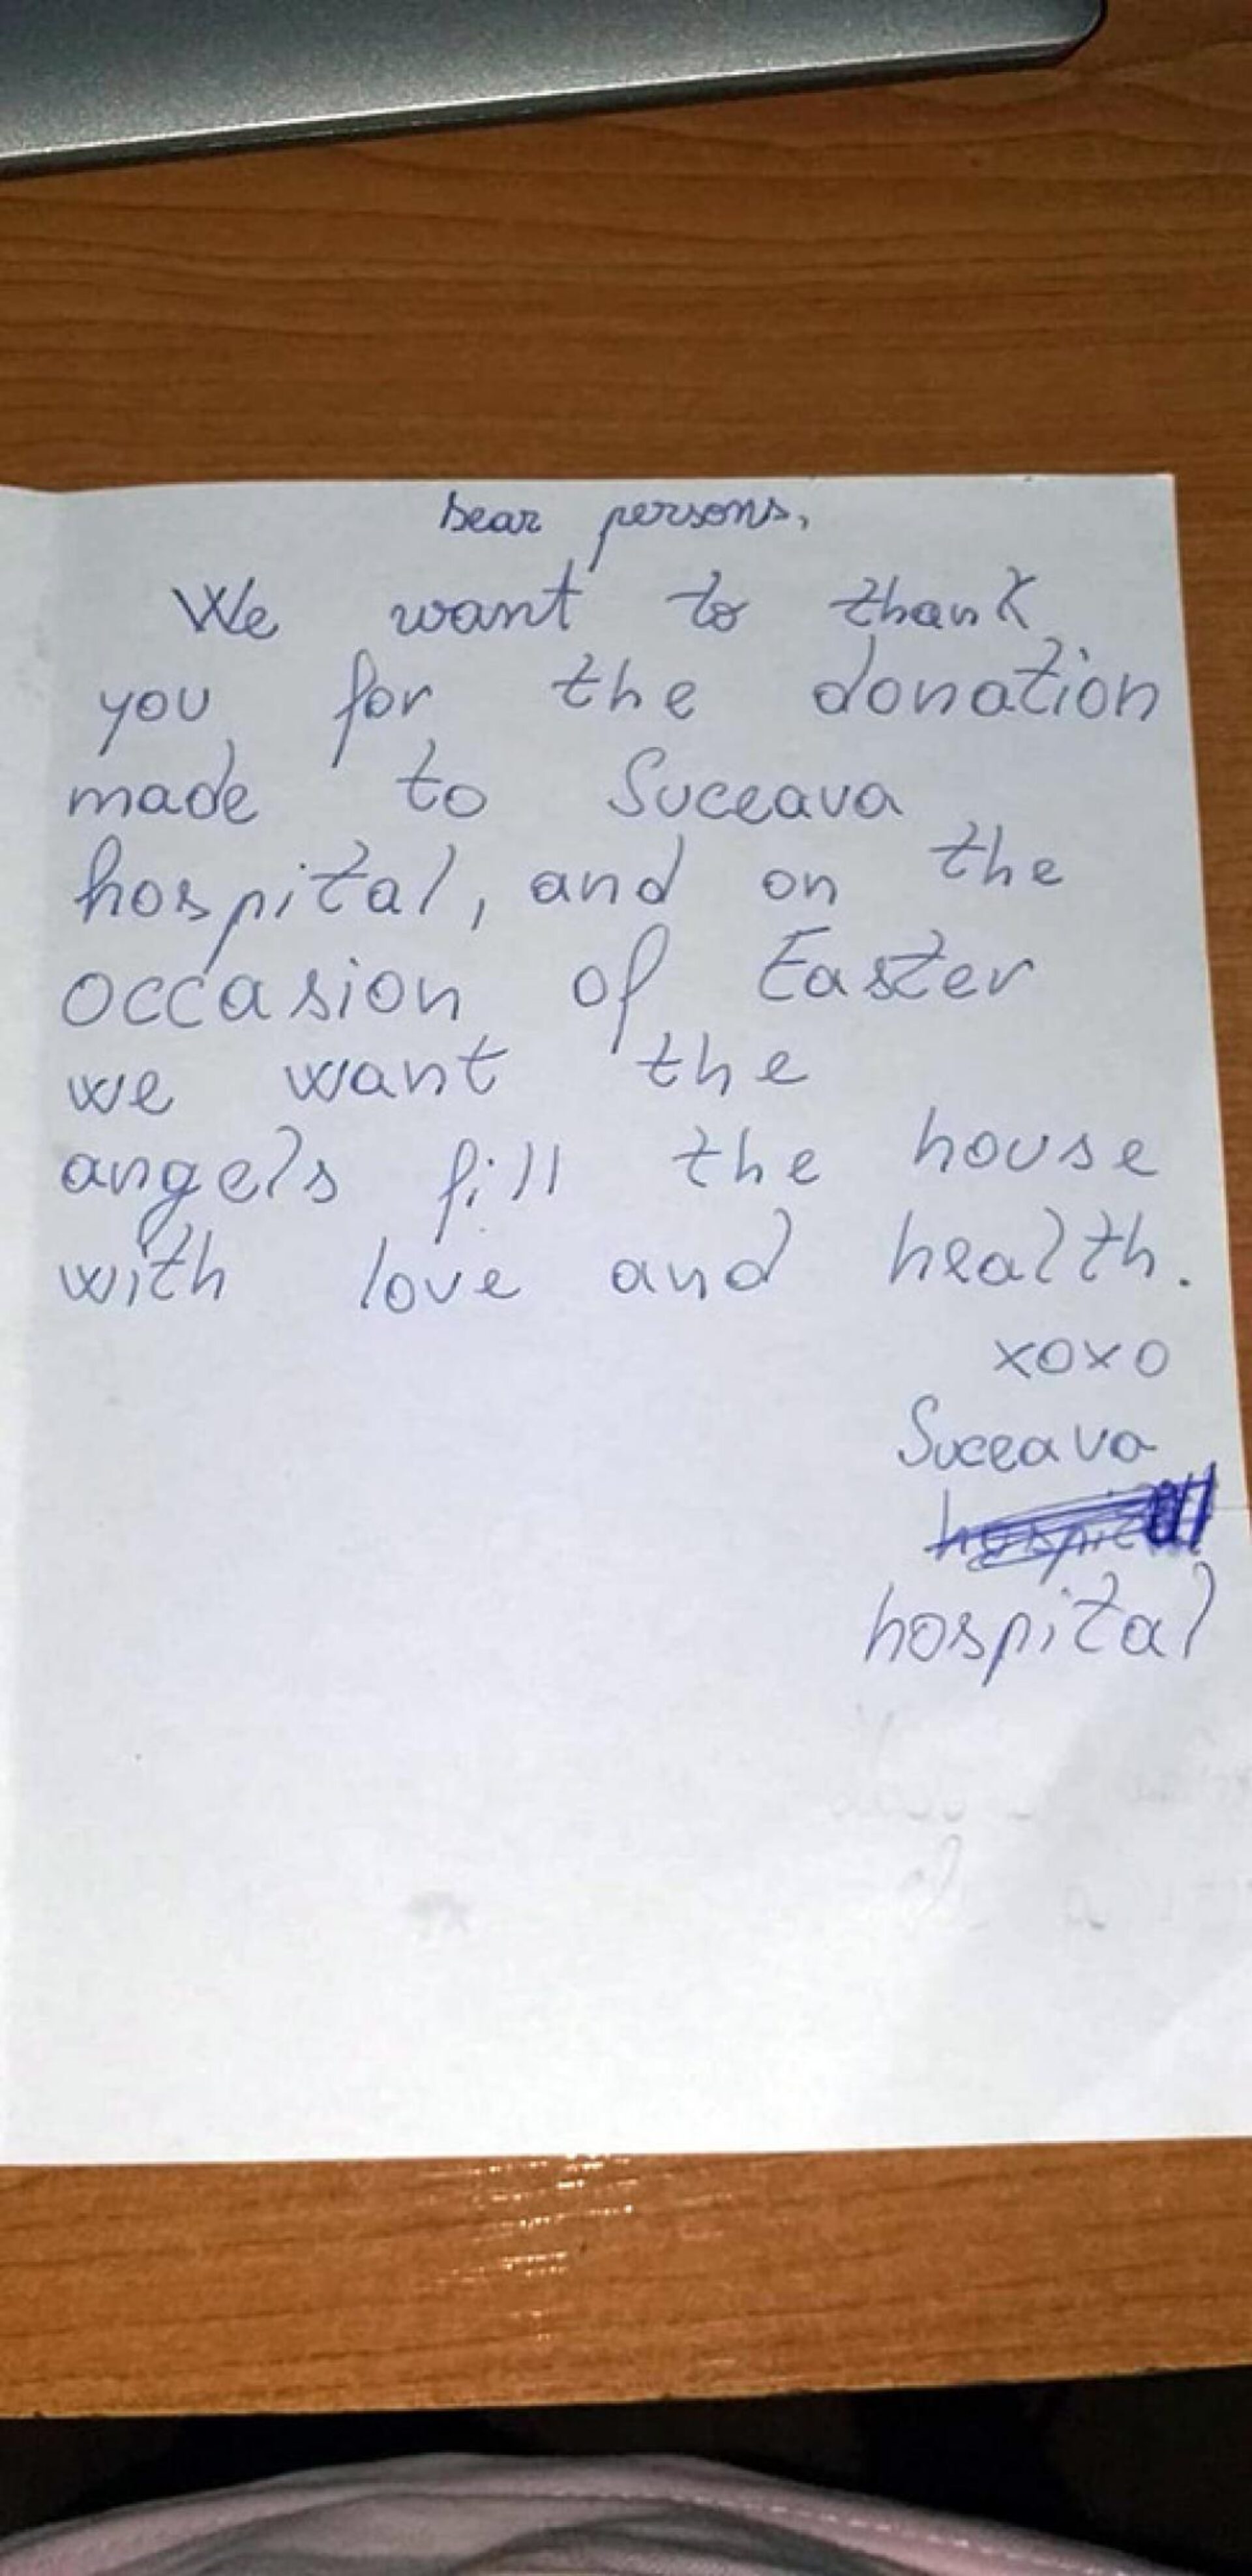 Dear persons,
We want to thank
you for the donation
made to Suceava
hospital, and on the
occasion of Easter
we want the
angels fill the house
with love and health.
xoxo
Suceava
hospital